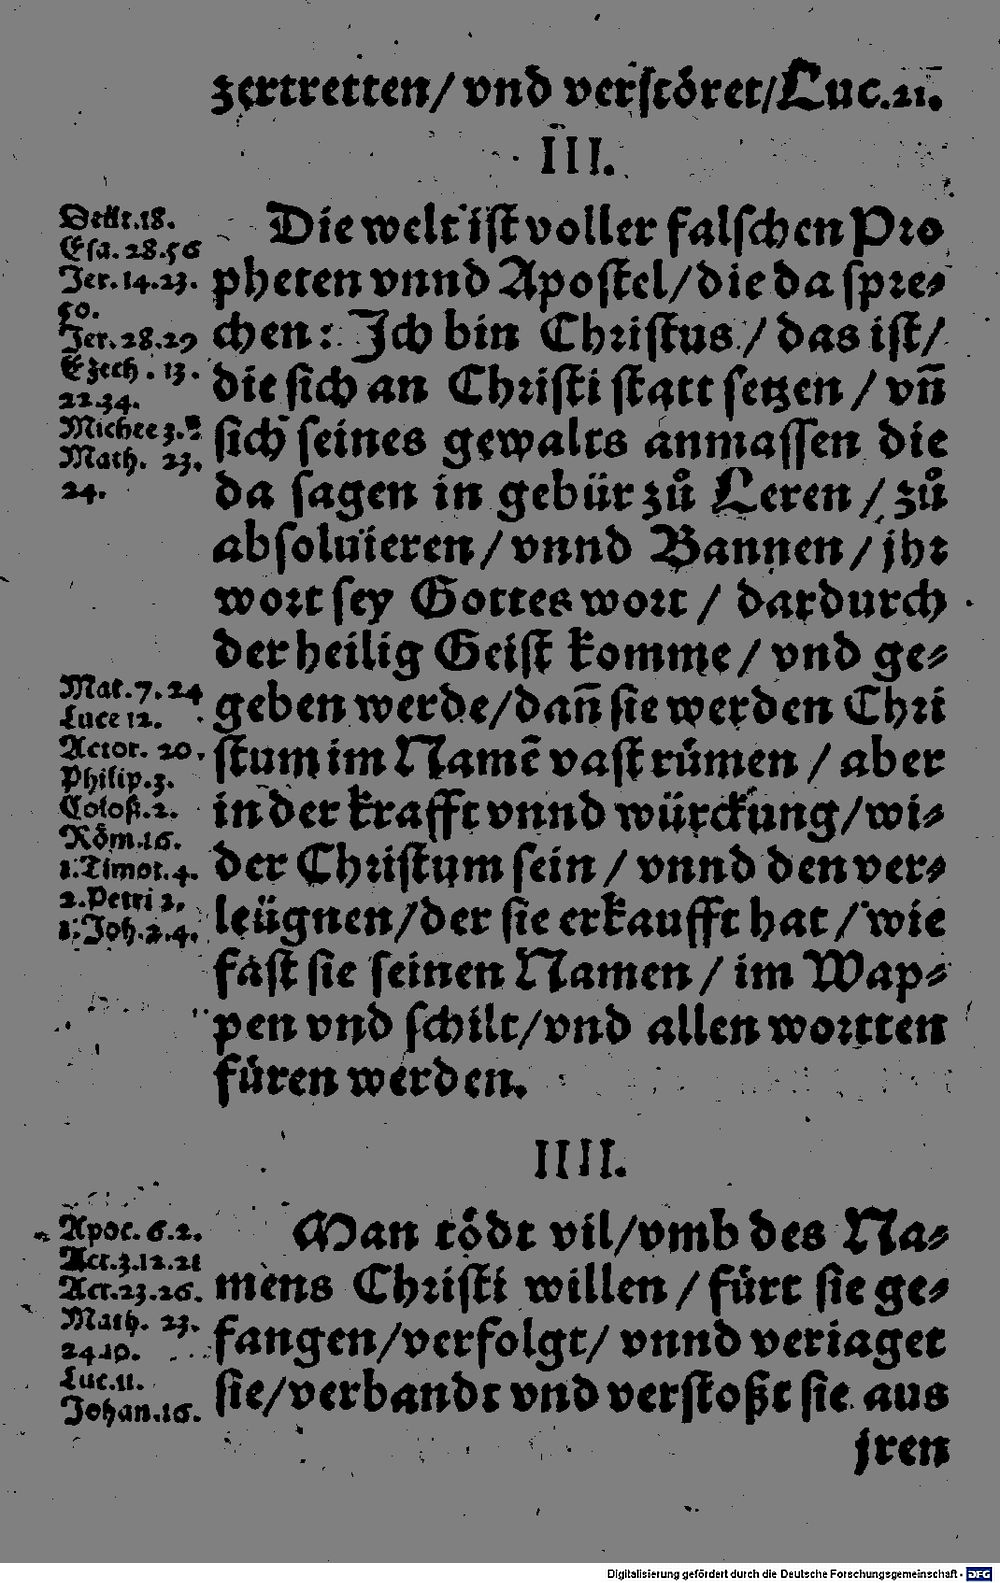 zertretten/ vnd verstöret/ Luc.21.
III.
Deut.18.
Esa. 28.56
Jer. 14.23.
50.
Jer. 28.29
Ezech. 13.
22.34.
Michee 3.
Math. 23.
24.
Die welt ist voller falschen Pro
pheten vnnd Apostel/ die da spre-
chen: Ich bin Christus/ das ist/
die sich an Christi statt setzen/ vñ
sich seines gewalts anmassen die
da sagen in gebür zů Leren/ zů
absoluieren/ vnnd Bannen/ jhr
wort sey Gottes wort/ dardurch
der heilig Geist komme/ vnd ge-
geben werde/ dañ sie werden Chri
stum im Namẽ vast růmen/ aber
in der krafft vnnd würckung/ wi-
der Christum sein/ vnnd den ver-
leügnen/ der sie erkaufft hat/ wie
fast sie seinen Namen/ im Wap-
pen vnd schilt/ vnd allen wortten
fůren werden.
Mat.7.24
Luce 12.
Actor. 20.
Philip.3.
Coloß.2.
Röm.16.
1.Timot.4.
2.Petri 2.
1.Joh.2.4.
IIII.
Apoc. 6.2.
Act.3.12.21
Act.23.26.
Math. 23.
24.10.
Luc.11.
Johan.16.
Man tödt vil/ vmb des Na-
mens Christi willen/ fůrt sie ge-
fangen/ verfolgt/ vnnd veriaget
sie/ verbandt vnd verstoßt sie aus
jren
Digitalisierung gefördert durch die Deutsche Forschungsgemeinschaft - DFG